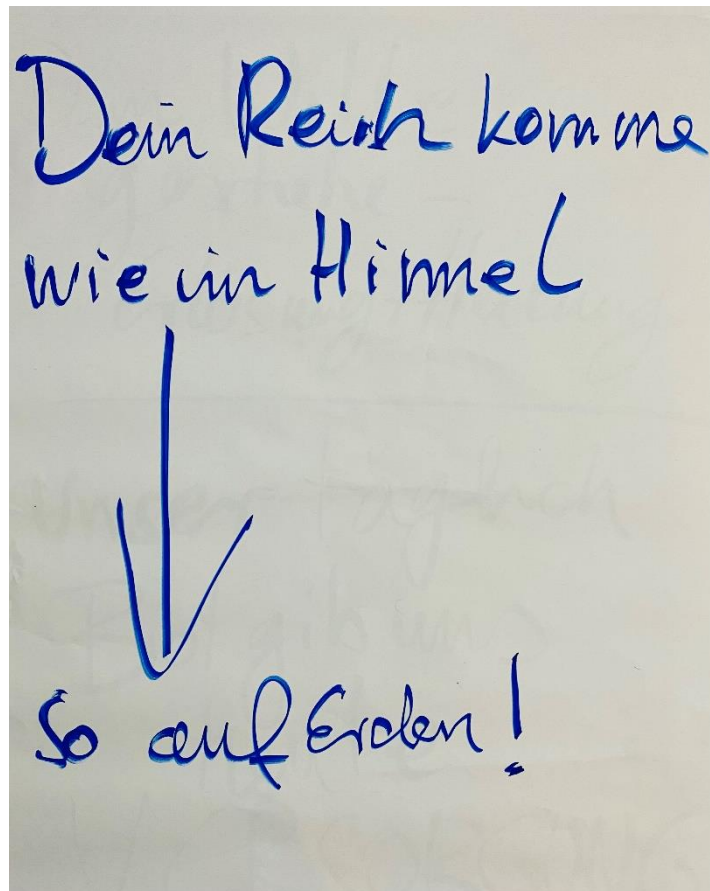 Dein Reich komme
wie im Himmel
so auf Erden!